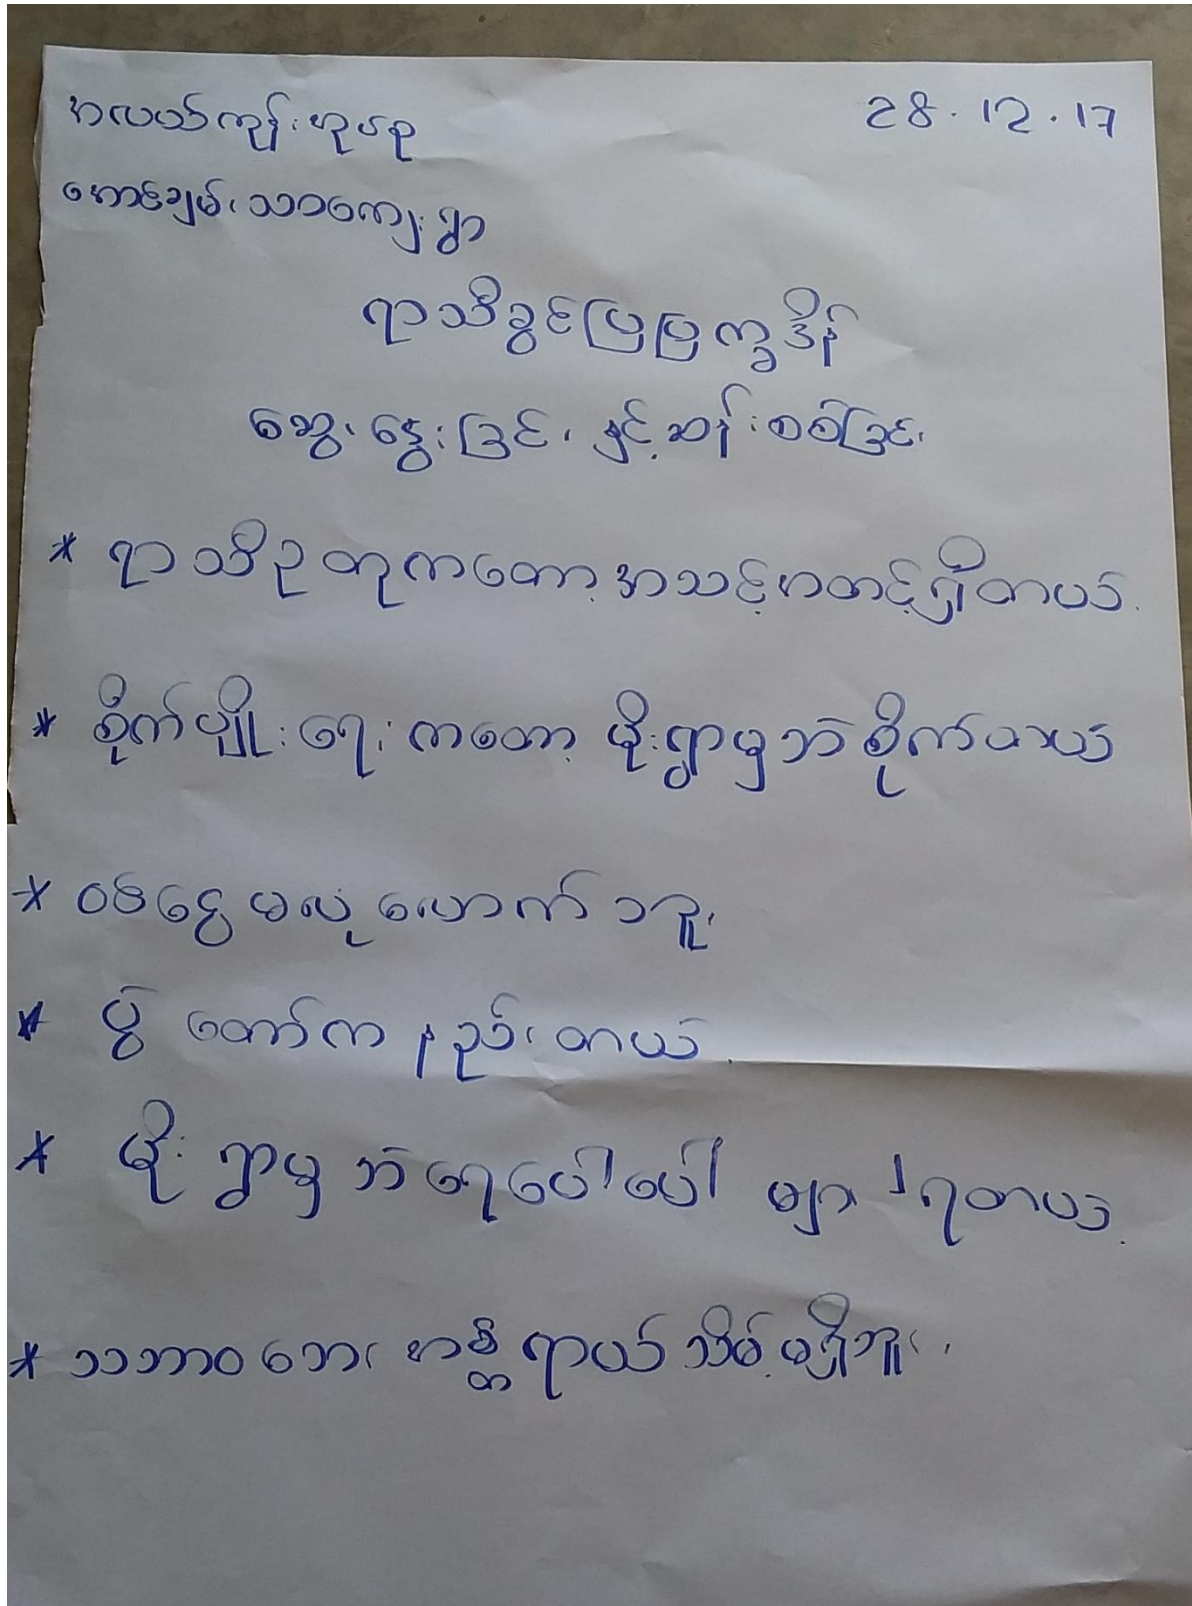 အလယ်ကျွန်းအုပ်စု 28.12.17
အောင်ချမ်းသာကျေးရွာ
ရာသီခွင်ပြပြက္ခဒိန်
ဆွေးနွေးခြင်း နှင့်ဆန်းစစ်ခြင်း
* ရာသီဥတုကတော့အသင့်အတင့်ရှိတယ်
* စိုက်ပျိုးရေးကတော့ မိုးရွာမှဘဲ စိုက်တယ်
* ဝမ်ငွေမလုံလောက်ဘူး
* ပွဲတော်က နည်းတယ်
* မိုးရွာမှဘဲရေပေါပေါ များများရတယ်
* သဘာဝဘေးအန္တရာယ်သိပ်မရှိဘူး